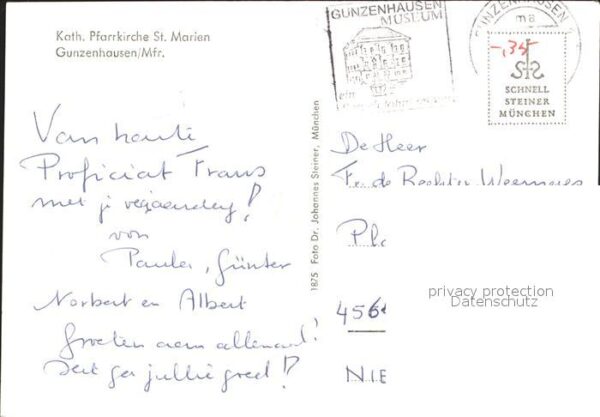 Kath. Pfarrkirche St. Marien
Gunzenhausen/Mfr.
Van harte
Proficiat Frans
met je verjaardag!
von
Paula, Günter
Norbert en Albert
Groeten aan allemaal!
jullie goed!?
1875 Foto Dr. Johannes Steiner, München
GUNZENHAUSEN
MUSEUM
ein
GUNZENHAUSEN
ma
-,35
SCHNELL
STEINER
MÜNCHEN
De Heer
Fr. de Rechter Weemaes
Pl.
456
NIE
privacy protection
Datenschutz